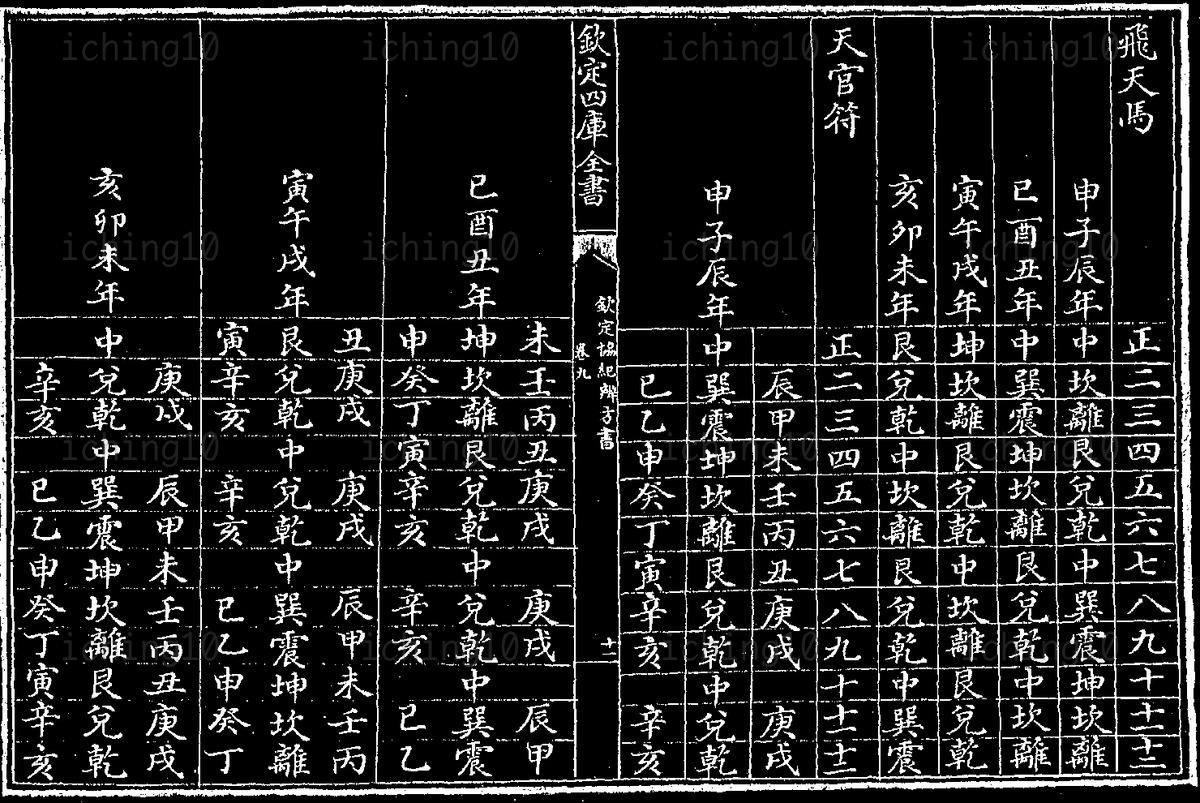 飛天馬 正 二 三 四 五 六 七 八 九 十 十一 十二
申子辰年 中 坎 離 艮 兌 乾 中 巽 震 坤 坎 離
巳酉丑年 中 巽 震 坤 坎 離 艮 兌 乾 中 坎 離
寅午戌年 坤 坎 離 艮 兌 乾 中 坎 離 艮 兌 乾
亥卯未年 艮 兌 乾 中 坎 離 艮 兌 乾 中 巽 震
天官符 正 二 三 四 五 六 七 八 九 十 十一 十二
辰 甲 未 壬 丙 丑 庚 戌 庚 戌
申子辰年 中 巽 震 坤 坎 離 艮 兌 乾 中 兌 乾
巳 乙 申 癸 丁 寅 辛 亥 辛 亥
欽定四庫全書
欽定協紀辨方書
卷九
十一
未 壬 丙 丑 庚 戌 庚 戌 辰 甲
巳酉丑年 坤 坎 離 艮 兌 乾 中 兌 乾 中 巽 震
申 癸 丁 寅 辛 亥 辛 亥 巳 乙
丑 庚 戌 庚 戌 辰 甲 未 壬 丙
寅午戌年 艮 兌 乾 中 兌 乾 中 巽 震 坤 坎 離
寅 辛 亥 辛 亥 巳 乙 申 癸 丁
庚 戌 辰 甲 未 壬 丙 丑 庚 戌
亥卯未年 中 兌 乾 中 巽 震 坤 坎 離 艮 兌 乾
辛 亥 巳 乙 申 癸 丁 寅 辛 亥
iching10 iching10 iching10 iching10
iching10 iching10 iching10 iching10
iching10 iching10 iching10 iching10
iching10 iching10 iching10 iching10